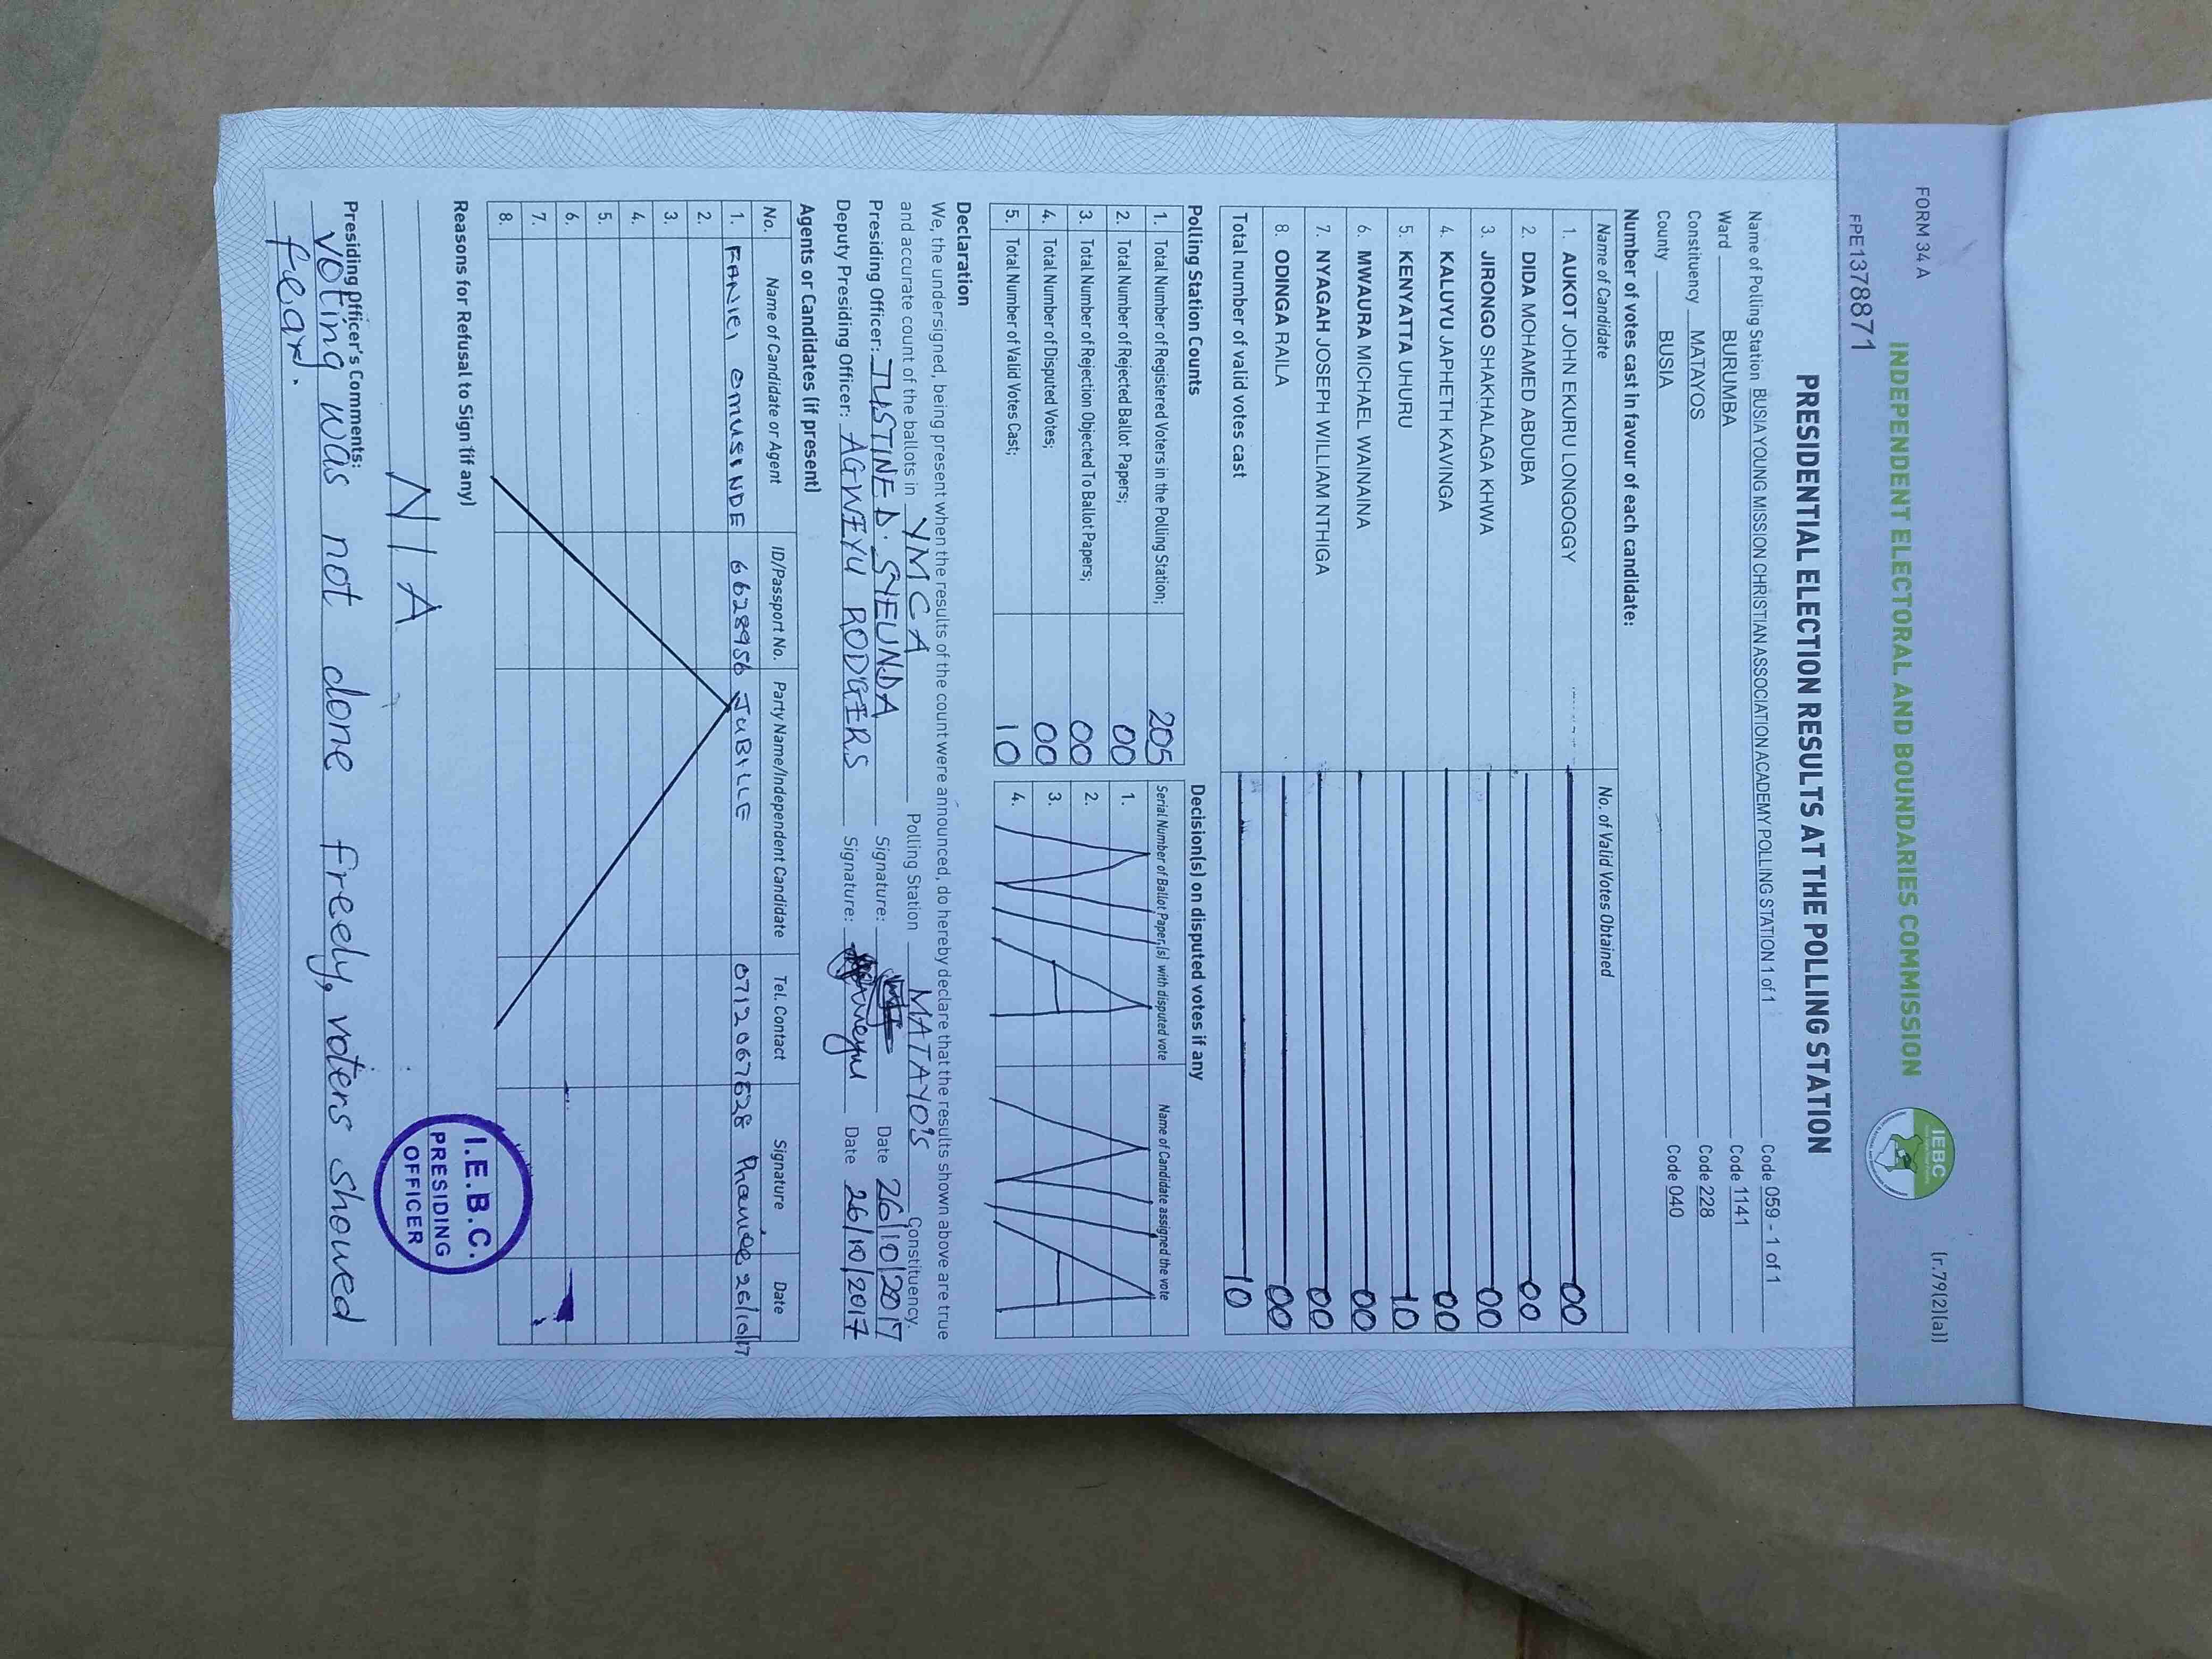 FORM 34 A
(r.79(2)(a))
INDEPENDENT ELECTORAL AND BOUNDARIES COMMISSION
IEBC
FPE137887 1
PRESIDENTIAL ELECTION RESULTS AT THE POLLING STATION
Name of Polling Station BUSIA YOUNG MISSION CHRISTIAN ASSOCIATION ACADEMY POLLING STATION 1 of 1 Code 059 - 1 of 1
Ward BURUMBA Code 1141
Constituency MATAYOS Code 228
County BUSIA Code 040
Number of votes cast in favour of each candidate:
Name of Candidate No. of Valid Votes Obtained
1. AUKOT JOHN EKURU LONGOGGY 00
2. DIDA MOHAMED ABDUBA 00
3. JIRONGO SHAKHALAGA KHWA 00
4. KALUYU JAPHETH KAVINGA 00
5. KENYATTA UHURU 10
6. MWAURA MICHAEL WAINAINA 00
7. NYAGAH JOSEPH WILLIAM NTHIGA 00
8. ODINGA RAILA 00
Total number of valid votes cast 10
Polling Station Counts Decision(s) on disputed votes if any
1. Total Number of Registered Voters in the Polling Station; 205 Serial Number of Ballot Paper(s) with disputed vote Name of Candidate assigned the vote
2. Total Number of Rejected Ballot Papers; 00 1.
3. Total Number of Rejection Objected To Ballot Papers; 00 2.
4. Total Number of Disputed Votes; 00 3.
5. Total Number of Valid Votes Cast; 10 4.
N/A N/A
Declaration
We, the undersigned, being present when the results of the count were announced, do hereby declare that the results shown above are true
and accurate count of the ballots in YMCA Polling Station MATAYO'S Constituency.
Presiding Officer: JUSTINE D. SYEUNDA Signature: Date 26/10/2017
Deputy Presiding Officer: AGWEYU RODGERS Signature: Date 26/10/2017
Agents or Candidates (if present)
No. Name of Candidate or Agent ID/Passport No. Party Name/Independent Candidate Tel. Contact Signature Date
1. FANIEL OMUSINDE 6628956 JUBILLE 0712067628 26/10/17
2.
3.
4.
5.
6.
7.
8.
Reasons for Refusal to Sign (if any)
N/A
Presiding Officer's Comments:
Voting was not done freely, voters showed
fear.
I.E.B.C.
PRESIDING
OFFICER